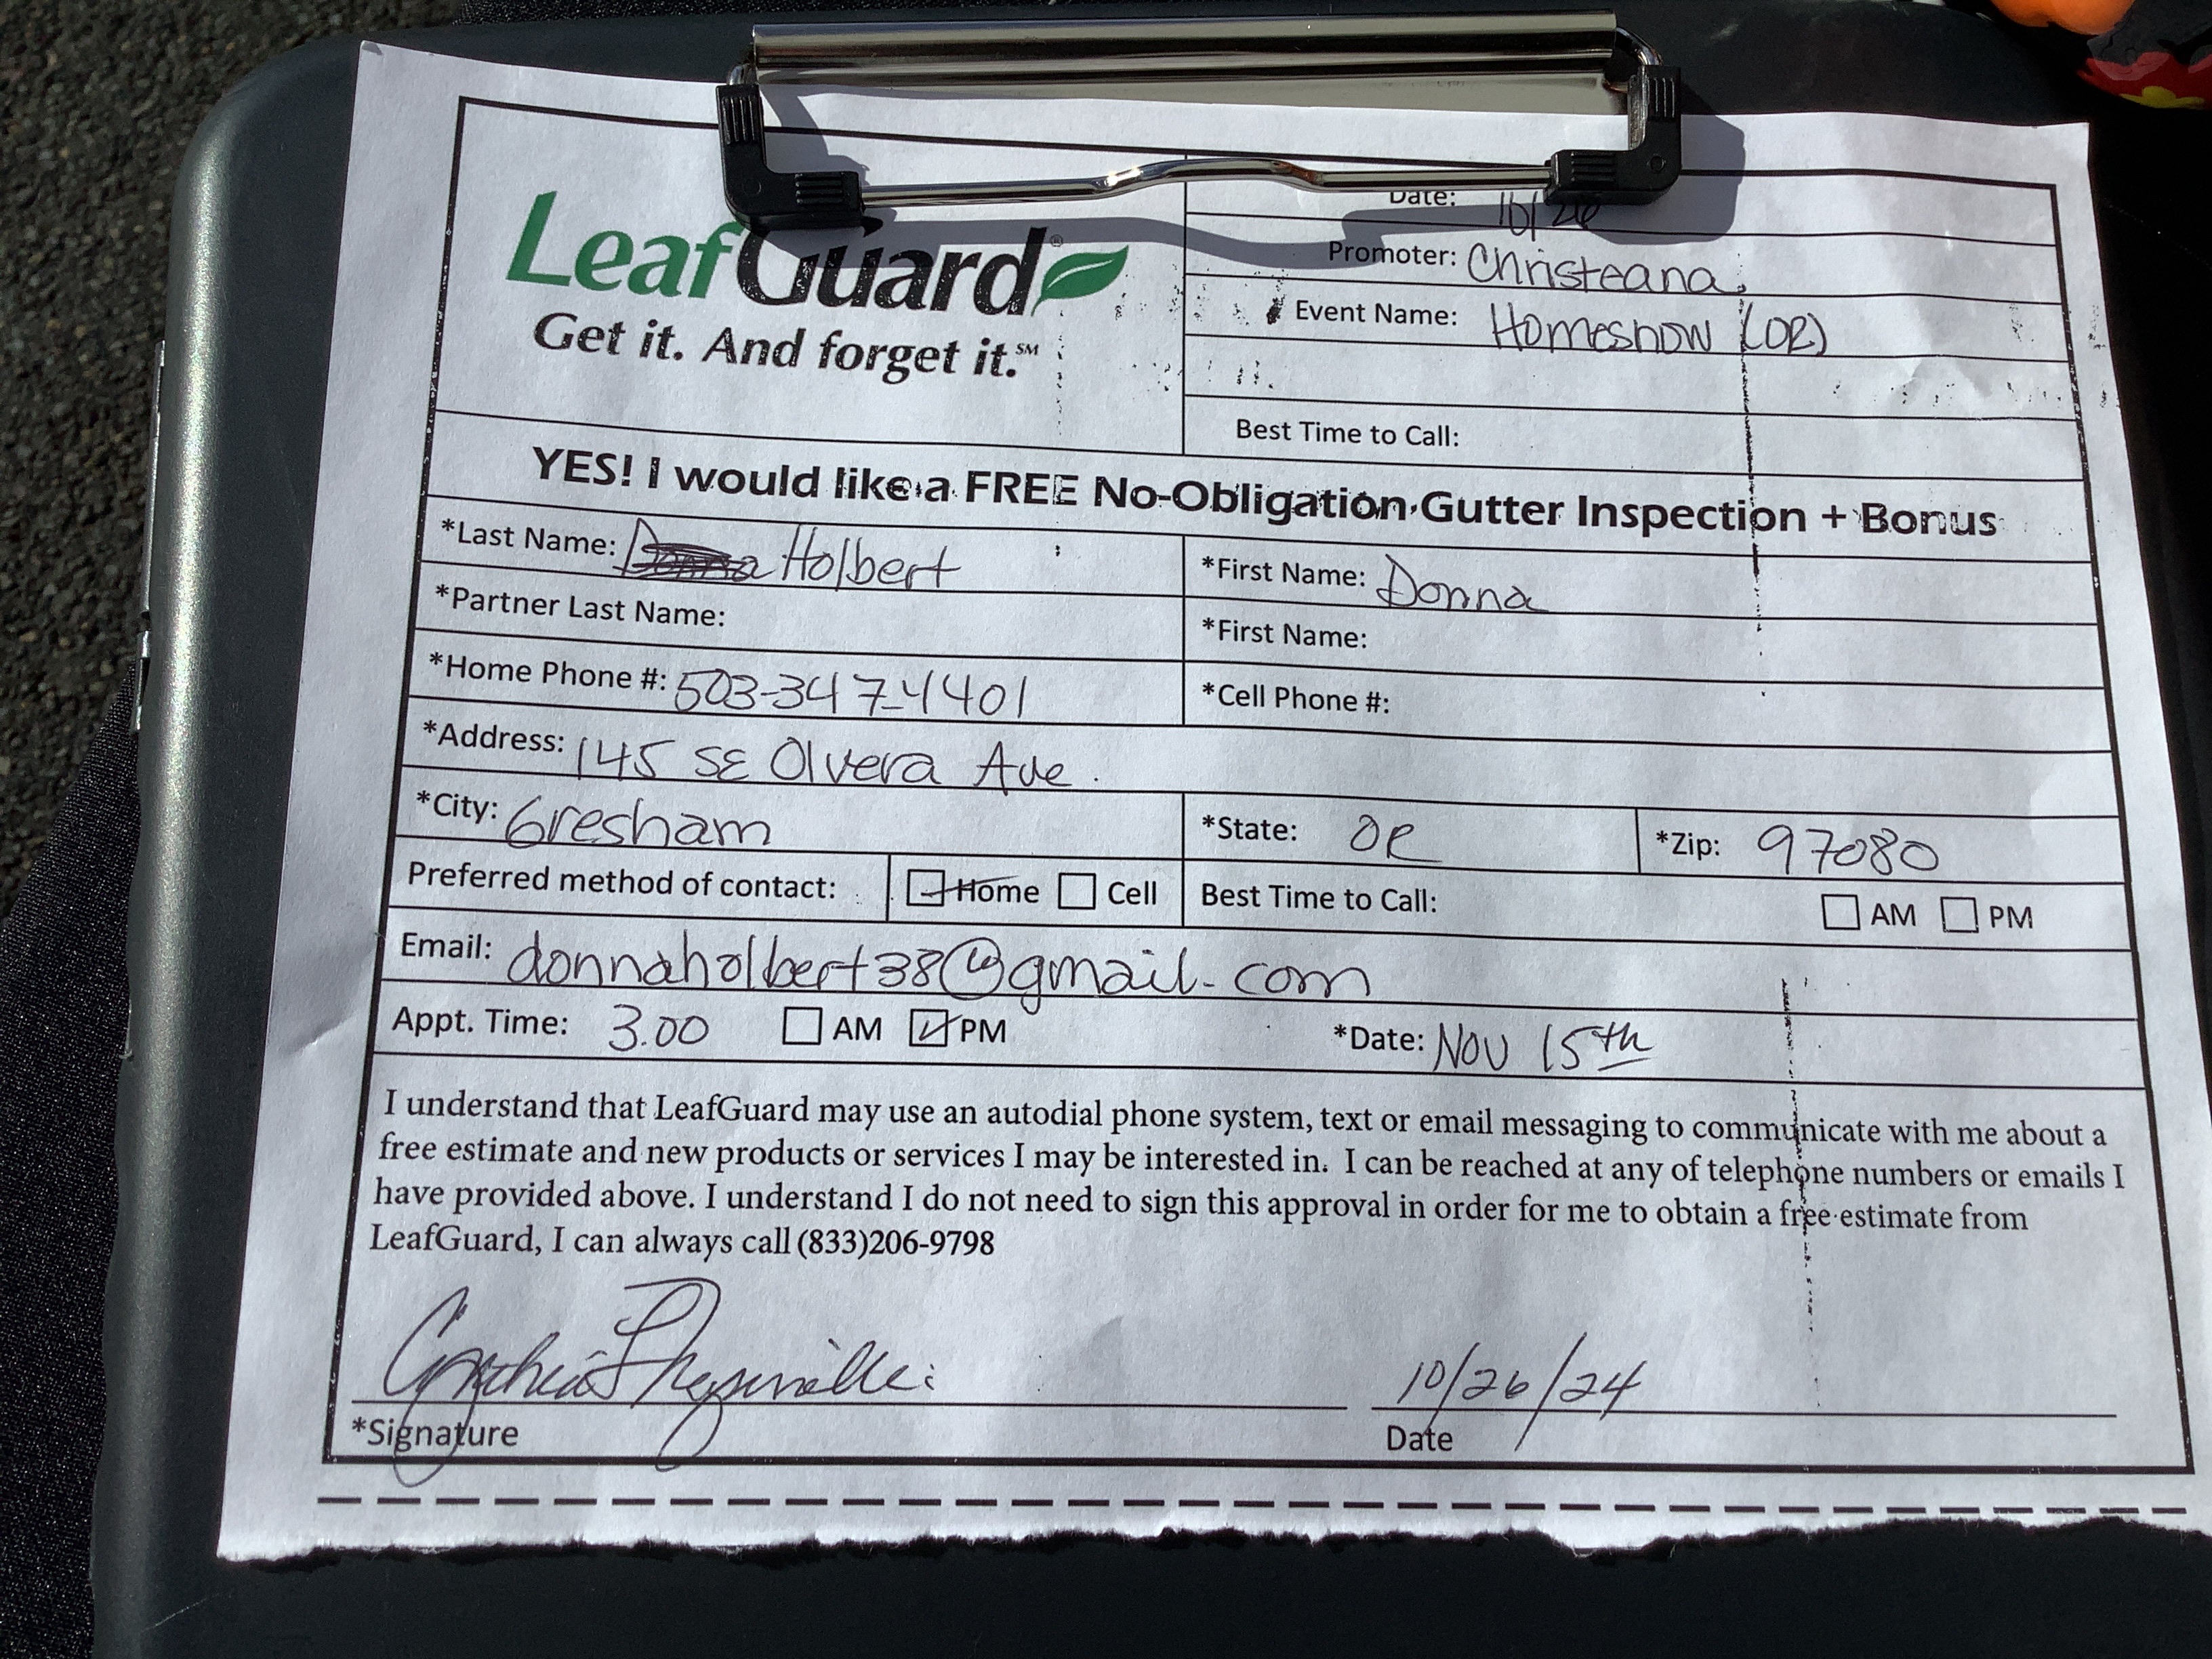 LeafGuard®
Get it. And forget it.℠
Date: 10/26
Promoter: Christeana
Event Name: Homeshow (OR)
Best Time to Call:
YES! I would like a FREE No-Obligation Gutter Inspection + Bonus
*Last Name: Holbert *First Name: Donna
*Partner Last Name: *First Name:
*Home Phone #: 503-347-4401 *Cell Phone #:
*Address: 145 SE Olvera Ave.
*City: Gresham *State: OR *Zip: 97080
Preferred method of contact: Home Cell Best Time to Call: AM PM
Email: donnaholbert38@gmail.com
Appt. Time: 3.00 AM PM *Date: Nov 15th
I understand that LeafGuard may use an autodial phone system, text or email messaging to communicate with me about a
free estimate and new products or services I may be interested in. I can be reached at any of telephone numbers or emails I
have provided above. I understand I do not need to sign this approval in order for me to obtain a free estimate from
LeafGuard, I can always call (833)206-9798
10/26/24
*Signature Date